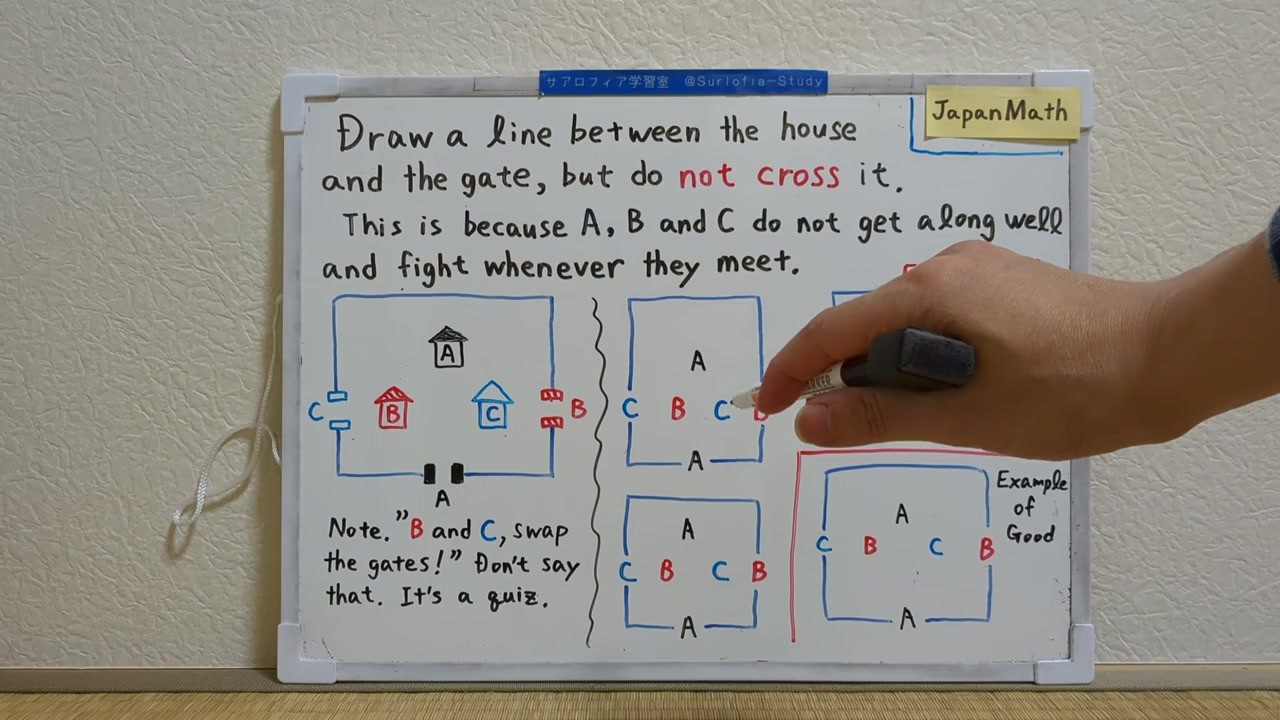 サアロフィア学習室 @Surlofia-Study
JapanMath
Draw a line between the house
and the gate, but do not cross it.
This is because A, B and C do not get along well
and fight whenever they meet.
A
C B C B
A
Note. "B and C, swap
the gates!" Don't say
that. It's a quiz.
A
C B C B
A
A
C B C B
A
Example
of
Good
A
C B C B
A